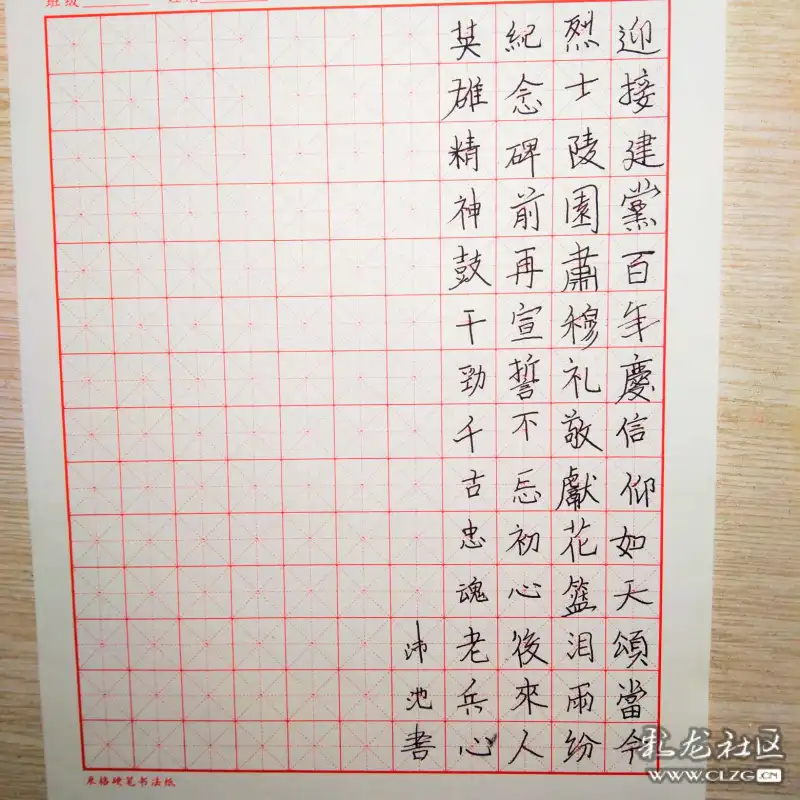 班级
迎接建黨百年慶信仰如天頌當今
烈士陵園肅穆礼敬獻花籃泪雨纷
紀念碑前再宣誓不忘初心後來人
英雄精神鼓干勁千古忠魂老兵心
沛池書
米格硬笔书法纸
札龙社区
WWW.CLZG.CN